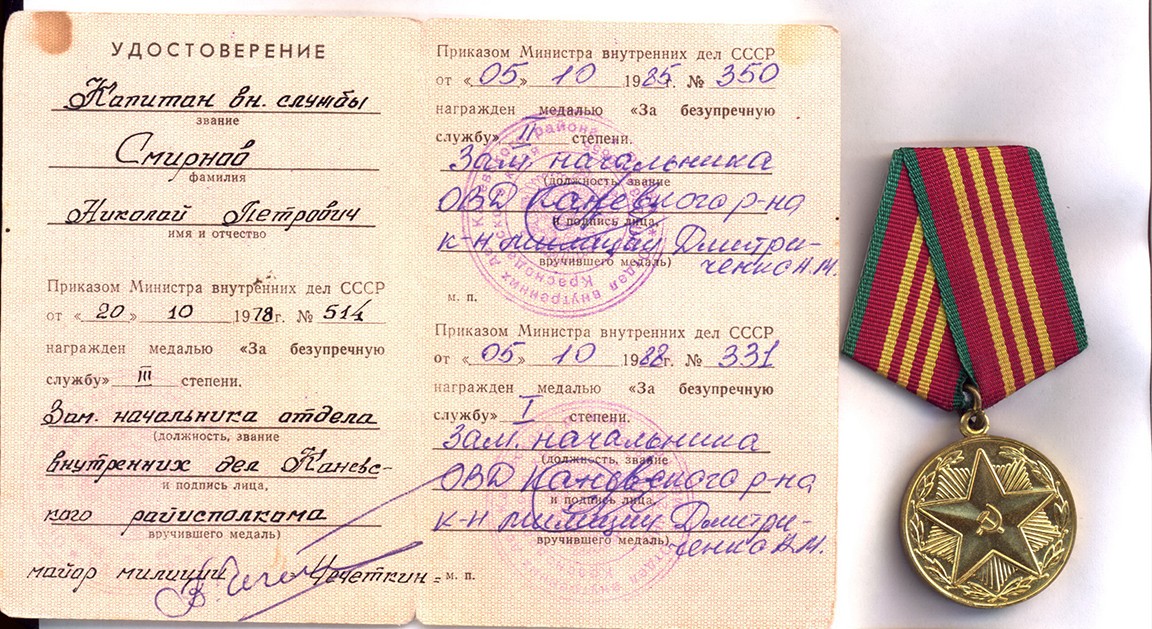 УДОСТОВЕРЕНИЕ
Капитан вн. службы
звание
Смирнов
фамилия
Николай Петрович
имя и отчество
Приказом Министра внутренних дел СССР
от «20» 10 1978г. № 514
награжден медалью «За безупречную
службу» III степени.
Зам. начальника отдела
(должность, звание
внутренних дел Каневс-
и подпись лица,
кого райисполкома
вручившего медаль)
майор милиции Чечеткин
Приказом Министра внутренних дел СССР
от «05» 10 1985г. № 350
награжден медалью «За безупречную
службу» II степени.
Зам. начальника
(должность, звание
ОВД Каневского р-на
и подпись лица,
к-н милиции Дмитри-
вручившего медаль)
ченко А.М.
м. п.
Приказом Министра внутренних дел СССР
от «05» 10 1988г. № 331
награжден медалью «За безупречную
службу» I степени.
Зам. начальника
(должность, звание
ОВД Каневского р-на
и подпись лица,
к-н милиции Дмитри-
вручившего медаль)
ченко А.М.
м. п.